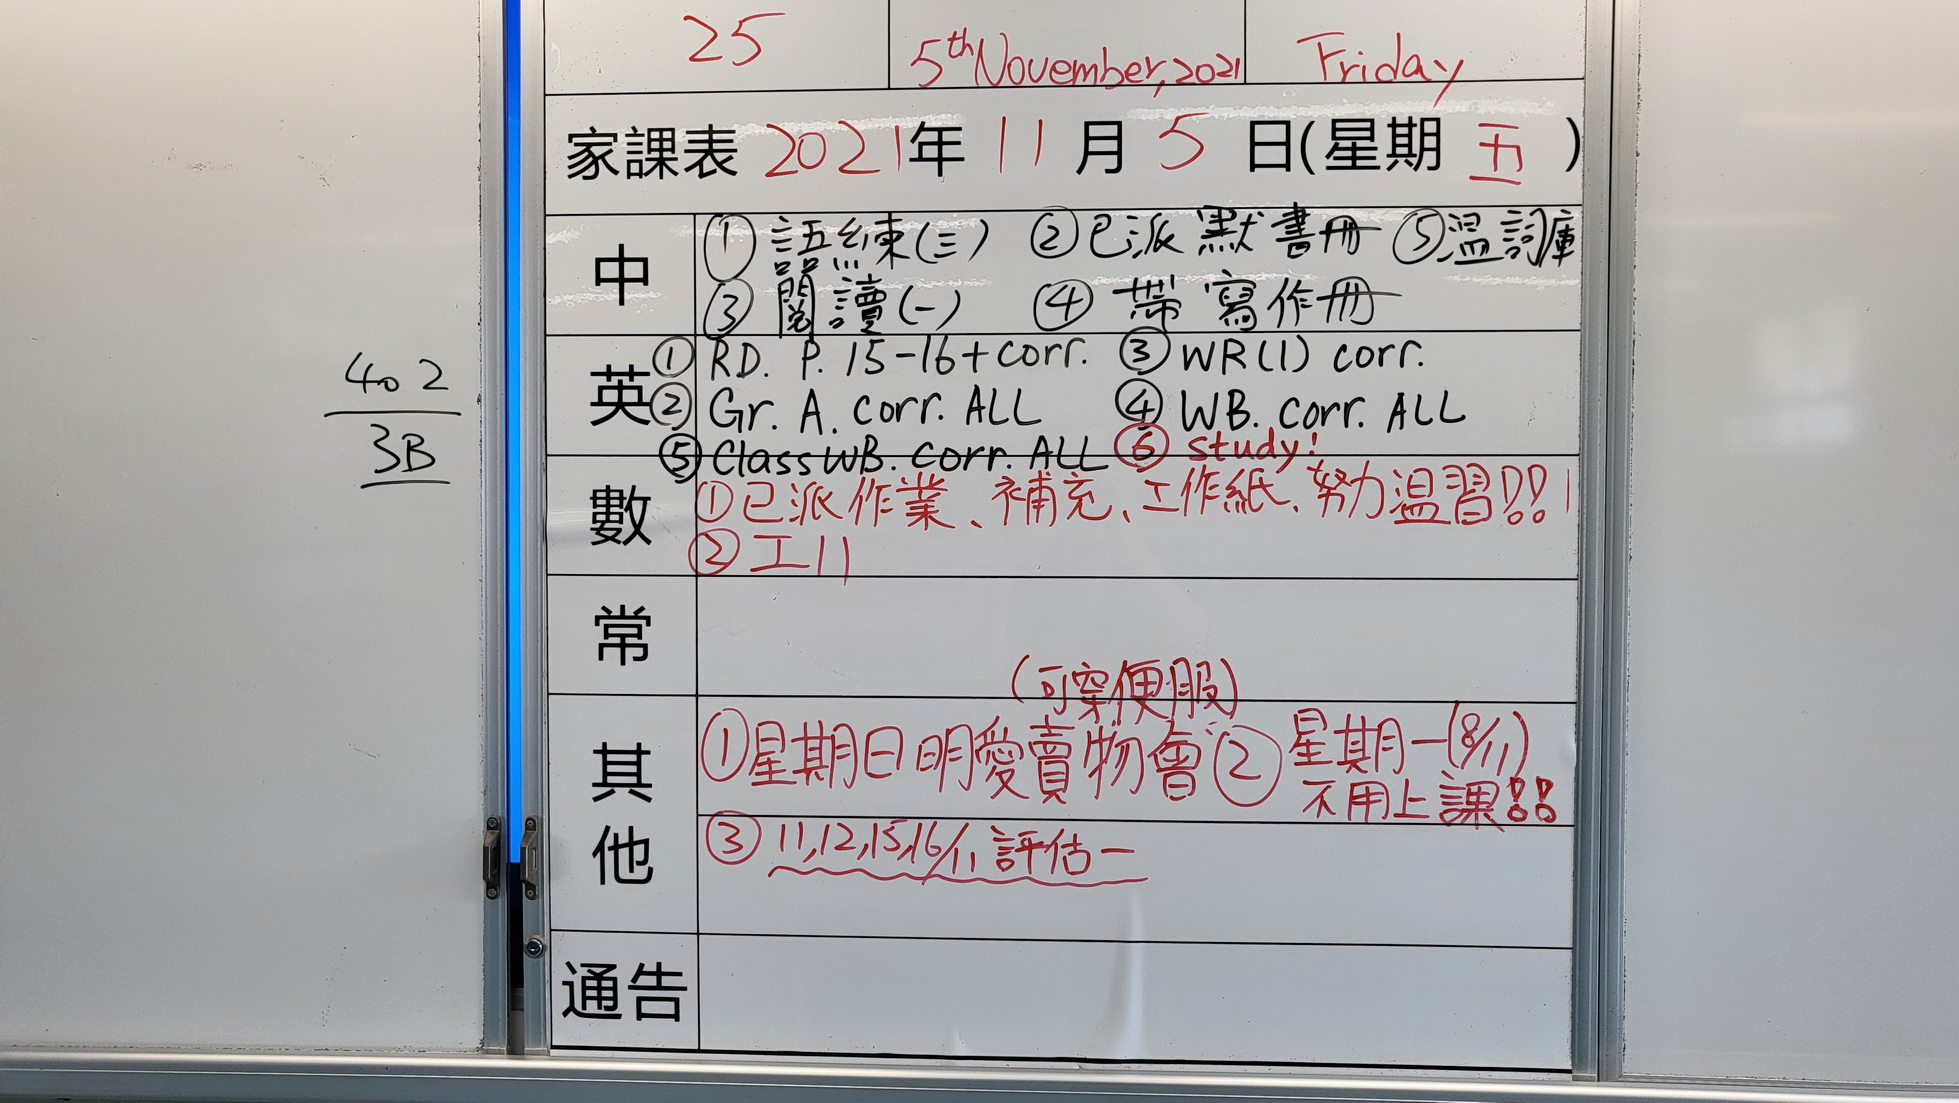 25 5th November, 2021 Friday
家課表 2021年 11 月 5 日(星期 五 )
中
① 語練(三) ② 已派默書冊 ⑤溫詞庫
③ 閱讀(一) ④ 帶寫作冊
英
① RD. P. 15-16+corr. ③ WR(1) corr.
② Gr. A. corr. ALL ④ WB. corr. ALL
⑤ Class WB. corr. ALL ⑥ study!
數
①已派作業、補充、工作紙、努力溫習!!!
② 工11
常
其他
(可穿便服)
①星期日明愛賣物會 ② 星期一(8/11)
不用上課!!
③ 11,12,15,16/11 評估一
通告
402
3B